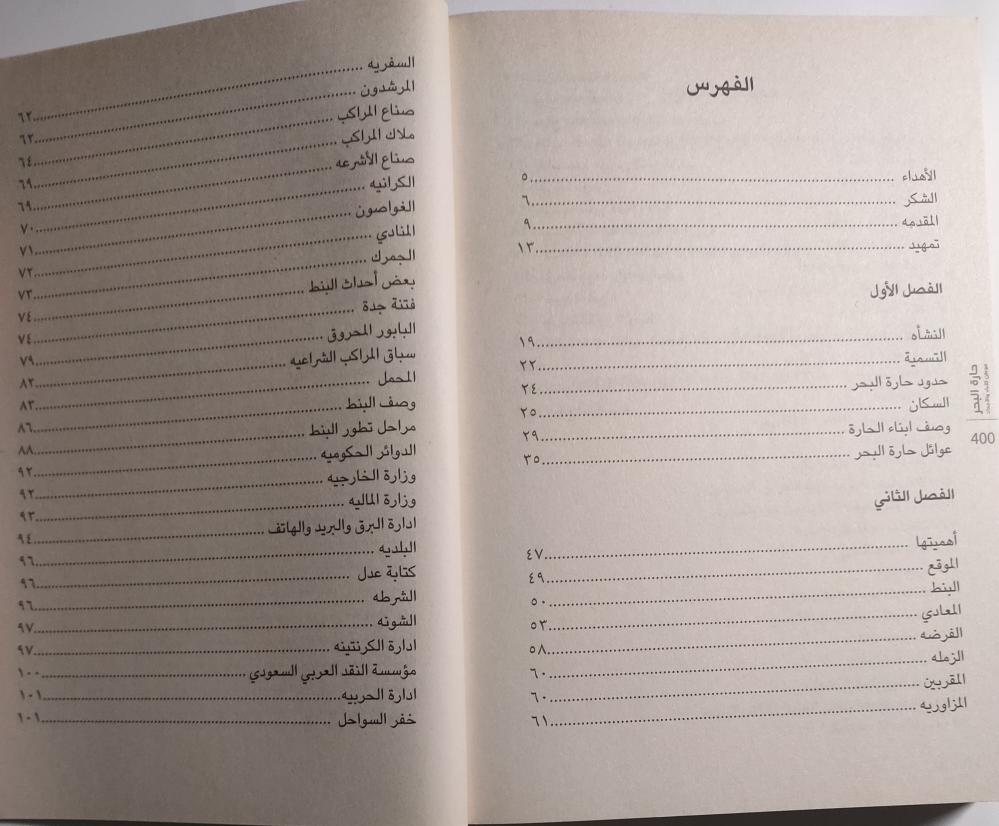 الفهرس
الأهداء ........ ٥
الشكر ........ ٦
المقدمه ........ ٩
تمهيد ........ ١٣
الفصل الأول
النشأه ........ ١٩
التسمية ........ ٢٢
حدود حارة البحر ........ ٢٤
السكان ........ ٢٥
وصف ابناء الحارة ........ ٢٩
عوائل حارة البحر ........ ٣٥
الفصل الثاني
أهميتها ........ ٤٧
الموقع ........ ٤٩
البنط ........ ٥٠
المعادي ........ ٥٣
الفرضه ........ ٥٨
الزمله ........ ٦٠
المقربين ........ ٦٠
المزاوريه ........ ٦١
حارة البحر
400
السفريه ........ ٦٢
المرشدون ........ ٦٢
صناع المراكب ........ ٦٤
ملاك المراكب ........ ٦٩
صناع الأشرعه ........ ٦٩
الكرانيه ........ ٧٠
الغواصون ........ ٧١
المنادي ........ ٧٢
الجمرك ........ ٧٣
بعض أحداث البنط ........ ٧٤
فتنة جدة ........ ٧٤
البابور المحروق ........ ٧٩
سباق المراكب الشراعيه ........ ٨٢
المحمل ........ ٨٣
وصف البنط ........ ٨٦
مراحل تطور البنط ........ ٨٨
الدوائر الحكوميه ........ ٩٢
وزارة الخارجيه ........ ٩٢
وزارة الماليه ........ ٩٣
ادارة البرق والبريد والهاتف ........ ٩٤
البلديه ........ ٩٦
كتابة عدل ........ ٩٦
الشرطه ........ ٩٦
الشونه ........ ٩٧
ادارة الكرنتينه ........ ٩٧
مؤسسة النقد العربي السعودي ........ ١٠٠
ادارة الحربيه ........ ١٠١
خفر السواحل ........ ١٠١